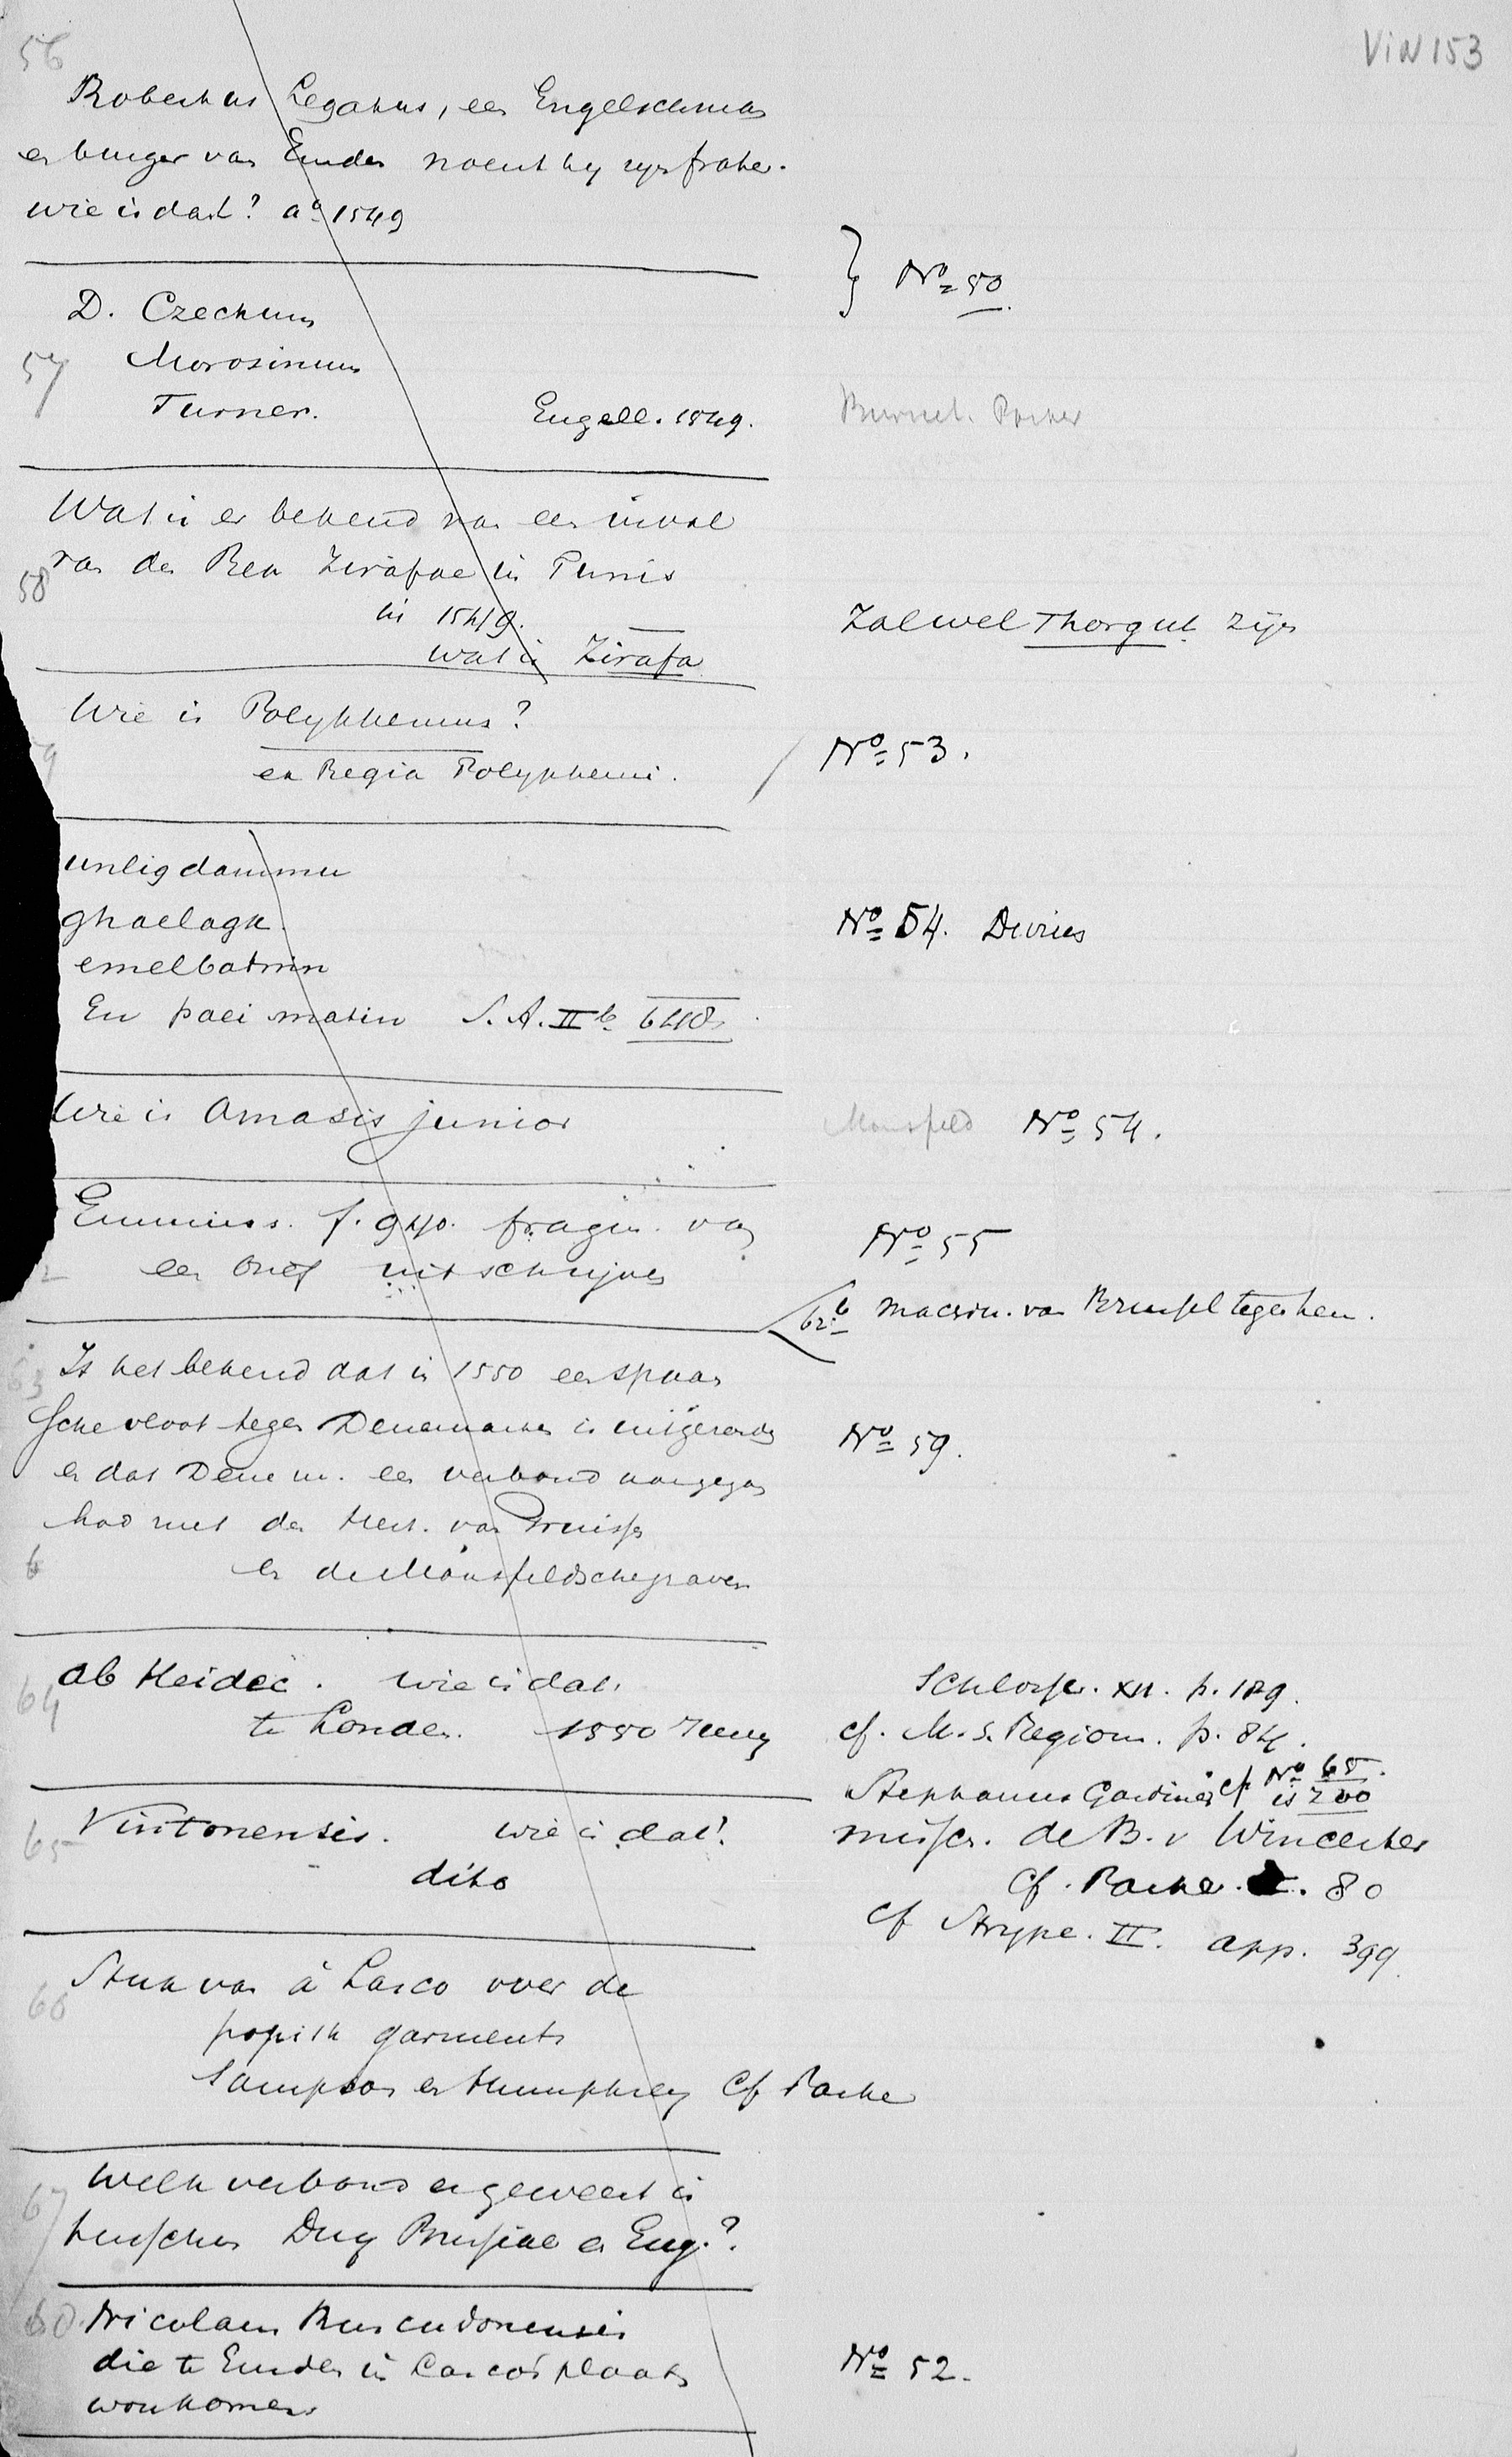 56
VIN 153
Robertus Legatus, een Engelschman
en burger van Emden noemt hij zijn frater.
wie is dat? ao 1549
} No 50.
D. Czechum
57 Morosinum
Turner. Engell. 1549.
Burnet. Parker
Wat is er bekend van een inval
van den Rex Zirafae in Tunis
58
in 1549.
wat is Zirafa
Zal wel Thorgut zijn
Wie is Polyphemus?
en Regia Polyphemi.
No 53.
unligdammu
ghaelagh
emelbatmin
En paei matin S.A. II b 648
No 54. Devries
Wie is Amasis junior
Mansfeld No 54.
Emmius. f. 940. fragm. van
een brief uitschrijven
No 55
62b macrin. van Brussel tegen hem.
63 Is het bekend dat in 1550 een spaan
sche vloot tegen Denemarken is uitgerend
en dat Denem. een verbond aangegaan
had met den Hert. van Pruissen
en de Mansfeldsche graven
No 59.
64 ab Heidec. wie is dat.
te Londen. 1550
Schlosser. XII. p. 189.
cf. M.S. Regiom. p. 84.
65 Vintonensis. wie is dat?
dito
Stephanus Gardiner cf No 68.
is 200
misscr. de B. v Wincester
Cf. Parker. 80
cf Strype. II. app. 399.
66 Stuk van à Lasco over de
popish garments
Sampson en Humphrey Cf Parker
67 Welk verbond er geweest is
tusschen Duq Prussiae en Eng.?
68. Nicolaus Buscudonensis
die te Emden in Lasco's plaats
zou komen
No 52.